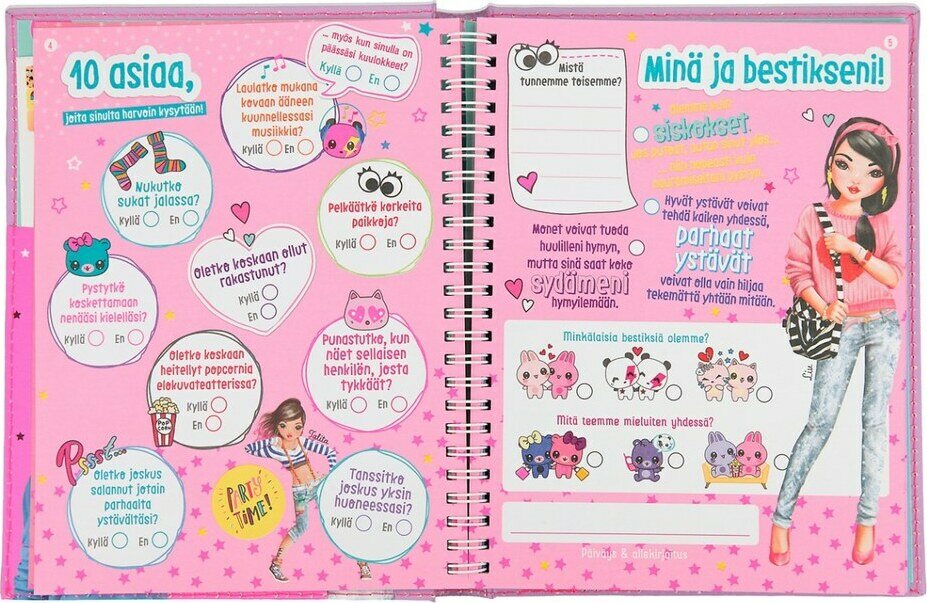 4
10 asiaa,
joita sinulta harvoin kysytään!
Laulatko mukana
kovaan ääneen
kuunnellessasi
musiikkia?
Kyllä En
... myös kun sinulla on
päässäsi kuulokkeet?
Kyllä En
Nukutko
sukat jalassa?
Kyllä En
Pelkäätkö korkeita
paikkoja?
Kyllä En
Oletko koskaan ollut
rakastunut?
Kyllä
En
Pystytkö
koskettamaan
nenääsi kielelläsi?
Kyllä En
Oletko koskaan
heitellyt popcornia
elokuvateatterissa?
Kyllä
En
POP
CORN
Punastutko, kun
näet sellaisen
henkilön, josta
tykkäät?
Kyllä En
Psssst...
Oletko joskus
salannut jotain
parhaalta
ystävältäsi?
Kyllä En
PARTY
TIME!
Talita
Tanssitko
joskus yksin
huoneessasi?
Kyllä En
5
Mistä
tunnemme toisemme?
Minä ja bestikseni!
Olemme kuin
siskokset.
Hyvät ystävät voivat
tehdä kaiken yhdessä,
parhaat
ystävät
voivat olla vain hiljaa
tekemättä yhtään mitään.
Monet voivat tuoda
huulilleni hymyn,
mutta sinä saat koko
sydämeni
hymyilemään.
Minkälaisia bestiksiä olemme?
Mitä teemme mieluiten yhdessä?
Liv
Päiväys & allekirjoitus